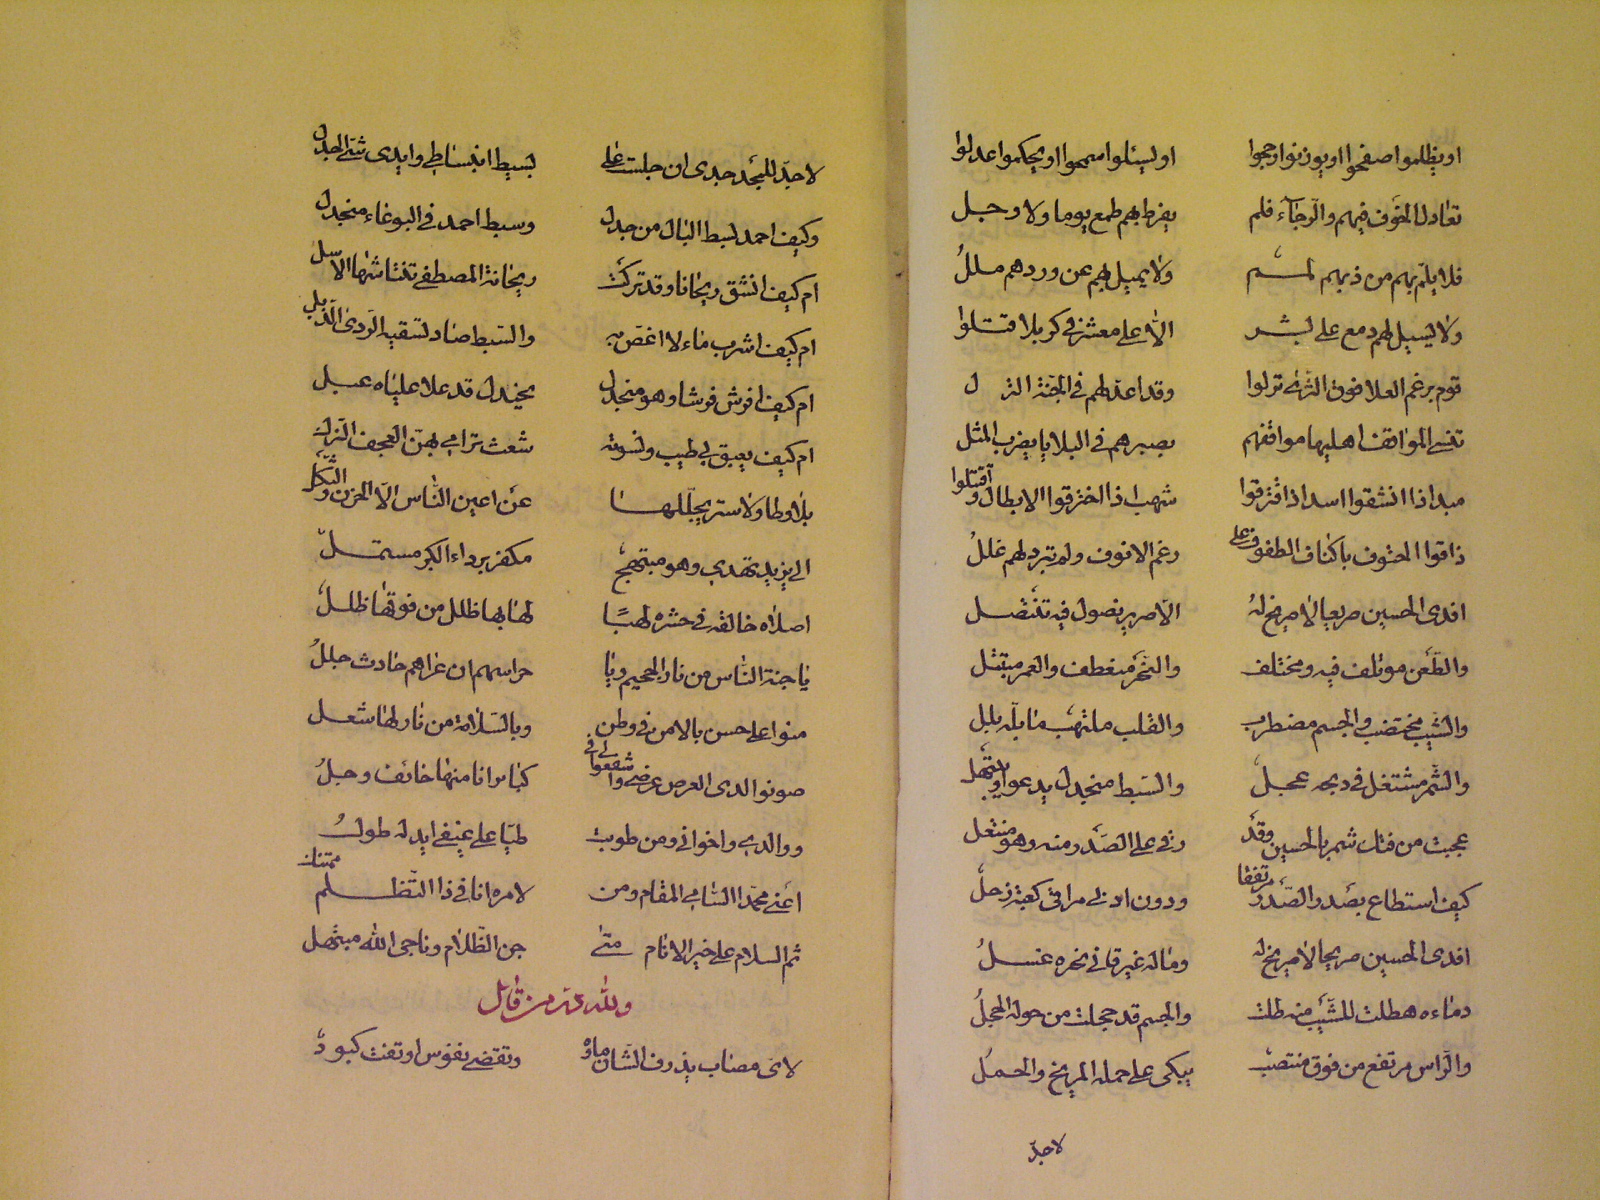 او يظلموا صفحوا او يوزنوا رجحوا او يسئلوا سمحوا او يحكموا عدلوا
تعادل الخوف فيهم والرجاء فلم يفرط بهم طمع يوما ولا وجل
فلا يلم بهم من ذنبهم لمم ولا يميل بهم عن وردهم ملل
ولا يسيل لهم دمع على بشر الا على معشر في كربلا قتلوا
قوم برغم العلا فوق الثرى نزلوا وقد اعد لهم في الجنة النزل
تنسى المواقف اهليها مواقفهم بصبرهم في البلايا يضرب المثل
اسدا اذا افترقوا شهب اذا اخترقوا الابطال واقتتلوا
ذاقوا الحتوف باكناف الطفوف على رغم الانوف ولم تبرد لهم غلل
افدى الحسين صريعا لا صريخ له الا صرير نصول فيه تنتضل
والطعن مؤتلف فيه ومختلف والنحر منعطف والعمر مبتتل
والشيب مختضب والجسم مضطرب والقلب ملتهب ما بله بلل
والشمر مشتغل في ذبحه عجل والسبط منجدل يدعوا ويبتهل
عجبت من فتك شمر بالحسين وقد رقى على الصدر منه وهو منتعل
كيف استطاع بصدر الصدر مرتفقا ودون ادنى مراقى كعبه زحل
افدى الحسين صريعا لا صريخ له وما له غير قانى نحره غسل
دماءه هطلت للشيب منه طلت والجسم قد حجلت من حوله الحجل
والراس مرتفع من فوق منتصب يبكى على حمله المريخ والحمل
لاجد
لا جد للمجد جدى ان جلست على بسيط انبساطى وايدى شتى الجدل
وكيف احمد بسط البال من جدل وسبط احمد في البوغاء منجدل
ام كيف انشق ريحانا وقد تركت ريحانة المصطفى تنتاشها الاسل
ام كيف اشرب ماء لا اغص به والسبط صاد لتسقيه الردى الذبل
ام كيف افرش فرشا وهو منجدل بجندل قد علا علياه
ام كيف يعبق بى طيب ونسوته شعث ترامى بهن العجف البزل
بلا وطا ولا ستر يجللها عن اعين الناس الا الحزن والثكل
الى يزيد تهدى وهو مبتهج برداء الكبر مشتمل
اصلاه خالقه في حشره لهبا لها بها ظلل من فوقها ظلل
يا جنة الناس من نار الجحيم ويا حراسهم ان عراهم حادث جلل
منوا على حسن بالامن في وطن وبالسلامة من نار لها شعل
صونوا لدى العرض عرضى واشفعوا لى في كبائر انا منها خائف وجل
ووالدى واخوانى ومن
اعنى محمدا السامى المقام ومن لامره انا في ذا النظم ممتثل
ثم السلام على خير الانام متى جن الظلام وناجى الله مبتهل
ولله در من قائل
لاى مصاب يذرف الشان ماؤه وتقضى نفوس او تفت كبود